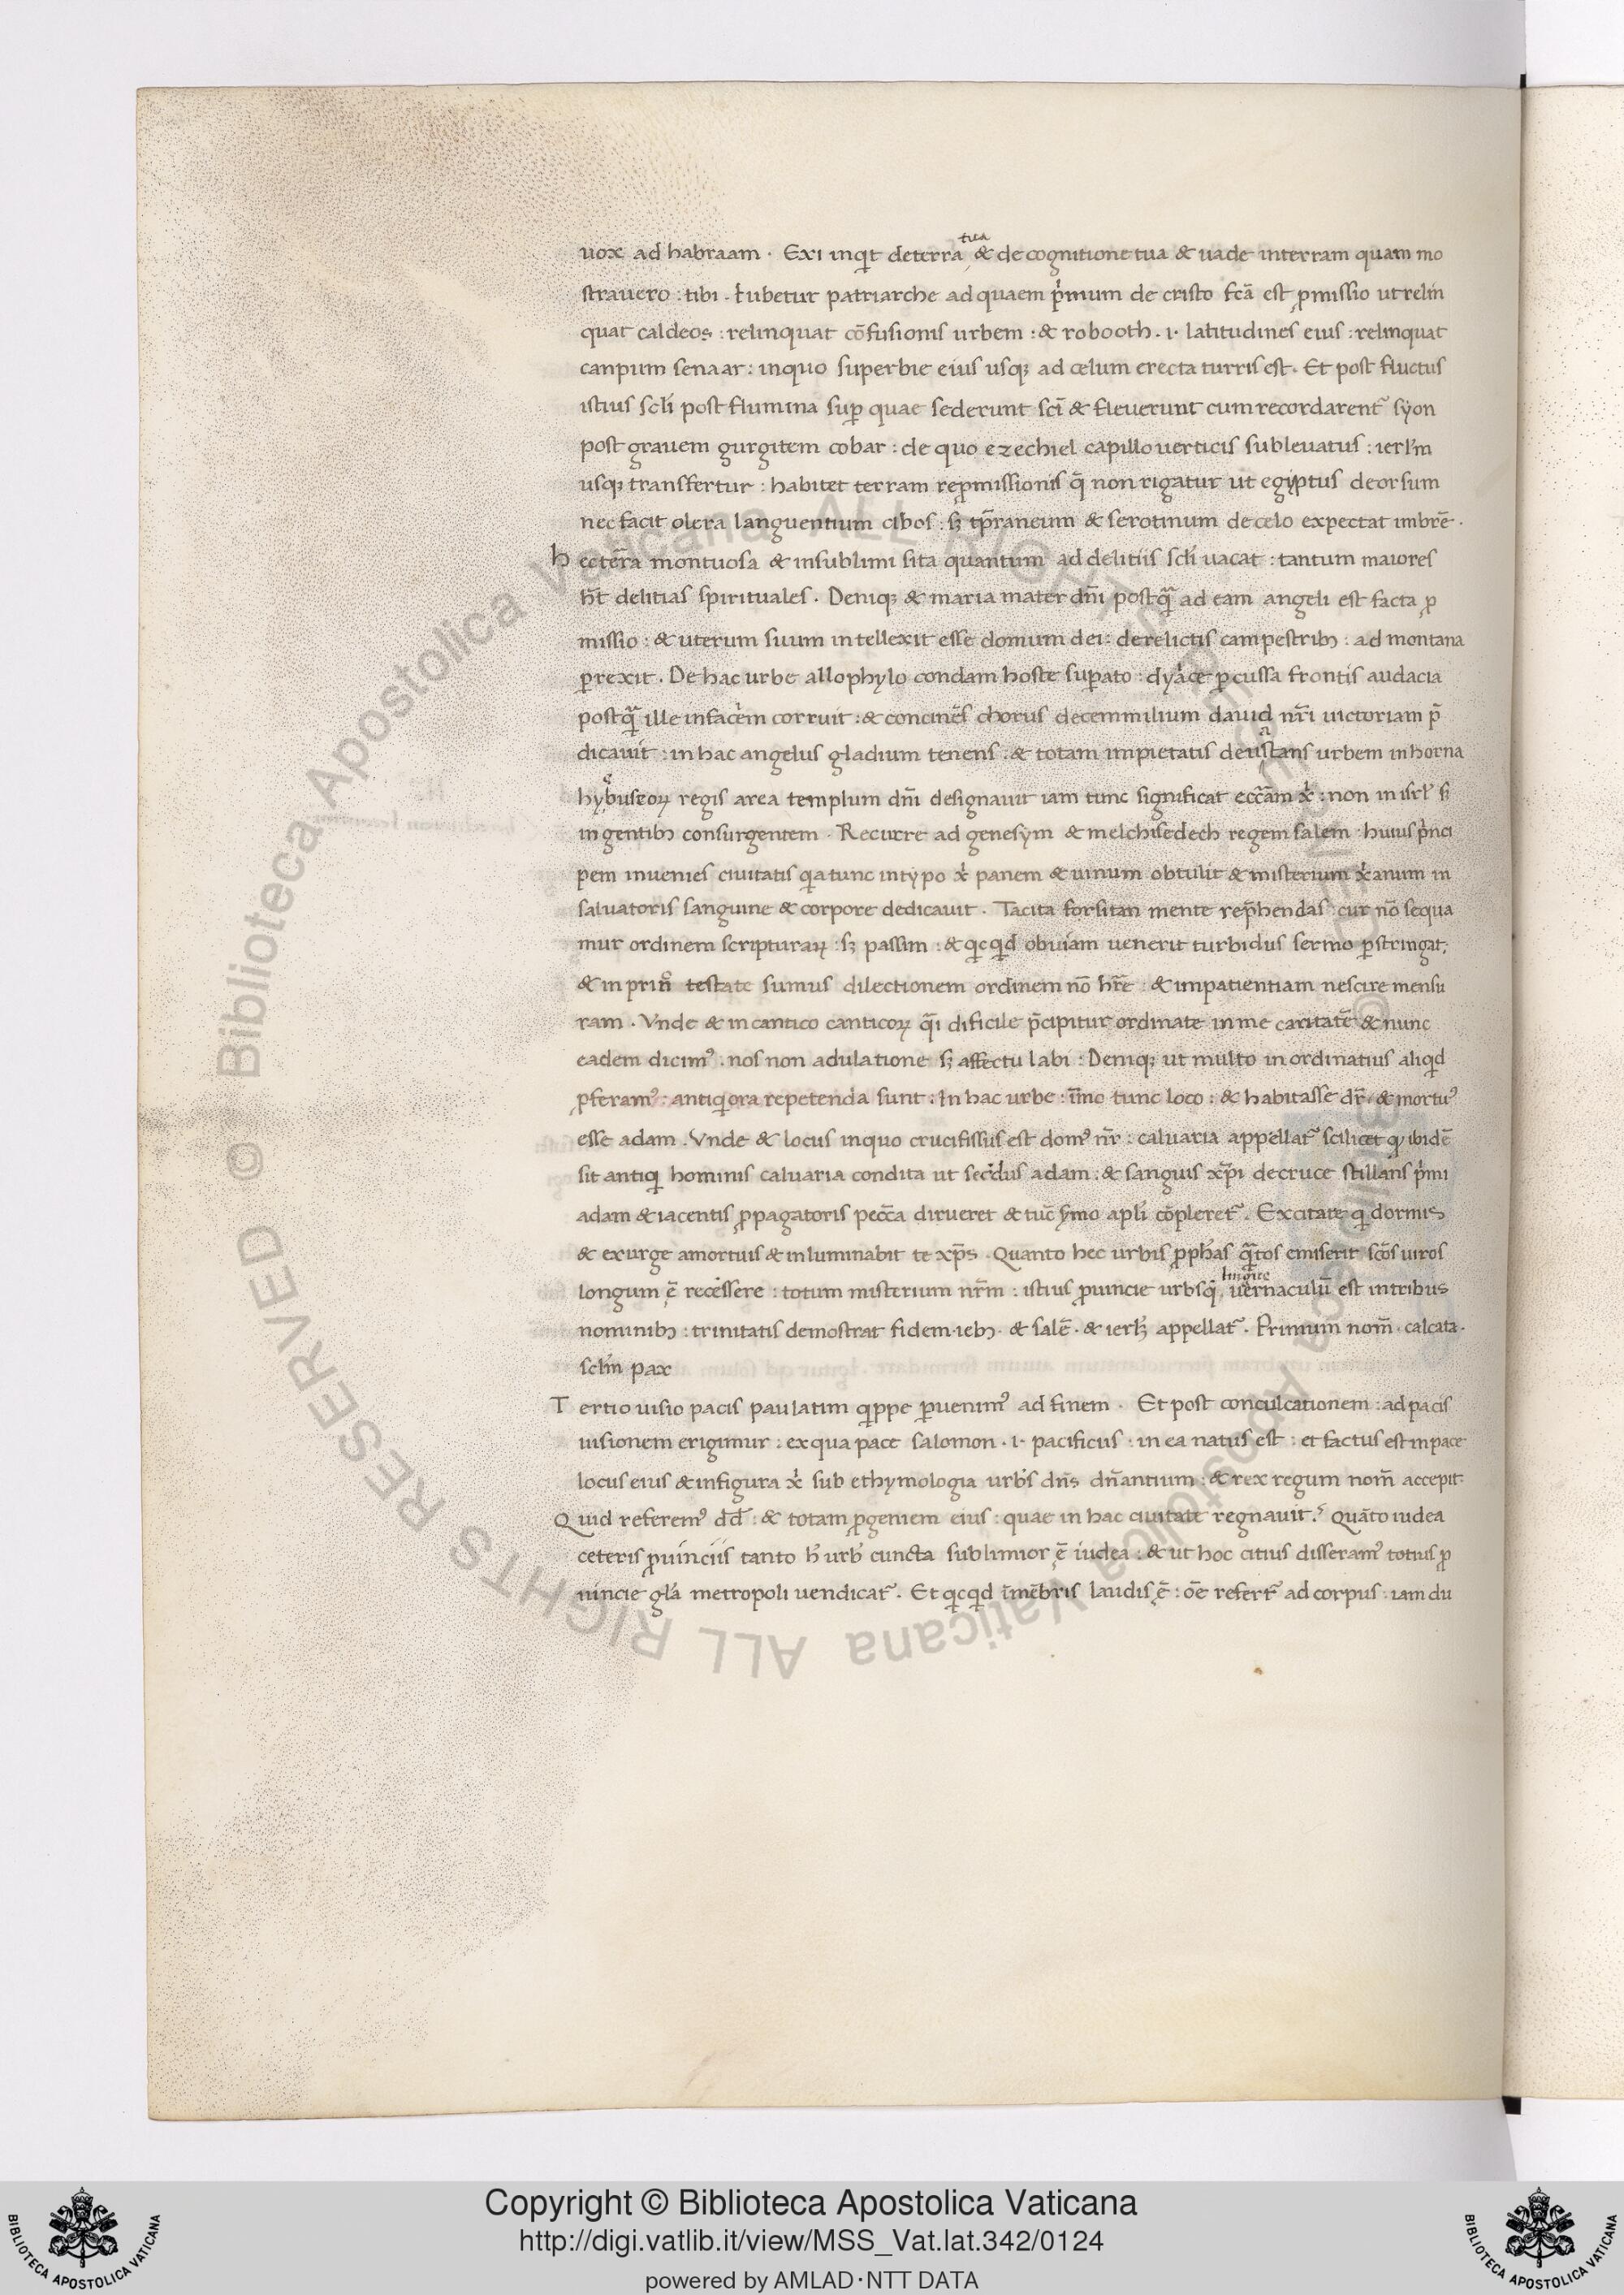 uox ad habraam · Exi inqit deterra tua & de cognitione tua & uade interram quam mo
strauero : tibi · Iubetur patriarche ad quaem pͥmum de cristo fcā est ꝓmissio utrelin
quat caldeos : relinquat cōfusionis urbem : & robooth · i · latitudines eius : relinquat
canpum senaar : inquo superbie eius usqꝫ ad celum erecta turris est · Et post fluctus
istius scłi post flumina suꝑ quae sederunt scī & fleuerunt cum recordarentᷣ syon
post grauem gurgitem cobar : de quo ezechiel capillo uerticis subleuatus : ierłm
usqꝫ transfertur : habitet terram reꝓmissionis q̄ non rigatur ut egiptus deorsum
nec facit olera languentium cibos : sꝫ tp̄raneum & serotinum de celo expectat imbrē ·
h ecter̄a montuosa & insublimi sita quantum ad delitiis scłi uacat : tantum maiores
ħt delitias spirituales · Deniqꝫ & maria mater dn̄i postq̄ ad eam angeli est facta ꝓ
missio : & uterum suum intellexit esse domum dei : derelictis campestribꝫ : ad montana
ꝑrexit · De hac urbe allophylo condam hoste suꝑato : dyaͥce ꝑcussa frontis audacia
postq̄ ille infaciem corruit : & concinēs chorus decemmilium dauid nr̄i uictoriam p̄
dicauit : in hac angelus gladium tenens : & totam impietatis deuastans urbem in horna
hyebuseoꝝ regis area templum dn̄i designauit iam tunc significat ecc̄am xͥ : non in isrł sꝫ
in gentibꝫ consurgentem · Recurre ad genesym & melchisedech regem salem huius pͥnci
pem inuenies ciuitatis qia tunc intypo xͥ panem & uinum obtulit & misterium xͥanum in
saluatoris sanguine & corpore dedicauit · Tacita forsitan mente rep̄hendas : cur nō sequa
mur ordinem scripturaꝝ : sꝫ passim : & qicqid obuiam uenerit turbidus sermo ꝑstringat
& in prin̊ testate sumus dilectionem ordinem nō hr̄e : & impatientiam nescire mensu
ram · Vnde & in cantico canticoꝝ q̄i dificile p̄cipitur ordinate in me caritatē & nunc
eadem dicimꝰ · nos non adulatione sꝫ affectu labi : Deniqꝫ ut multo in ordinatius aliqid
ꝓferamꝰ : antiqiora repetenda sunt : In hac urbe : īmo tunc loco : & habitasse dr̄ · & mortuꝰ
esse adam · Vnde & locus inquo crucifissus est domꝰ nr̄ : caluaria appellatᷣ scilicet qꝫ ibidē
sit antiqi hominis caluaria condita ut secd̄us adam : & sanguis xp̄i de cruce stillans pͥmi
adam & iacentis ꝓpagatoris pecc̄a dirueret & tūc sͤmo apłi cōpleretᷣ · Excitate qi dormis
& exurge amortuis & inluminabit te xp̄s · Quanto hec urbis ꝓphās q̄tos emiserit scōs uiros
longum ē recēssere : totum misterium nr̄m : istius ꝓuincie urbsqͥ lingue uernaculū est intribus
nominibꝫ : trinitatis demostrat fidem · iebꝫ · & salē · & ierłꝫ appellatᷣ · Primum nom̄ · calcata ·
scłm pax
T ertio uisio pacis paulatim qippe ꝑuenimꝰ ad finem · Et post conculcationem : ad pacis
uisionem erigimur : ex qua pace salomon · i · pacificus : in ea natus est : et factus est in pace
locus eius & infigura xͥ sub ethymologia urbis dn̄s dn̄antium : & rex regum nom̄ accepit
Q uid referemꝰ dd̄ : & totam ꝓgeniem eius : quae in hac ciuitate regnauit? Quāto iudea
ceteris ꝓuinciis tanto ħ urbͥ cuncta sublimior ē iudea : & ut hoc citius disseramꝰ totius ꝓ
uincie głā metropoli uendicatᷣ · Et qicqid īmēbris laudis ē : oē refertᷣ ad corpus : iam du
© Biblioteca Apostolica Vaticana ALL RIGHTS RESERVED
Copyright © Biblioteca Apostolica Vaticana
http://digi.vatlib.it/view/MSS_Vat.lat.342/0124
powered by AMLAD·NTT DATA
BIBLIOTECA APOSTOLICA VATICANA
BIBLIOTECA APOSTOLICA VATICANA